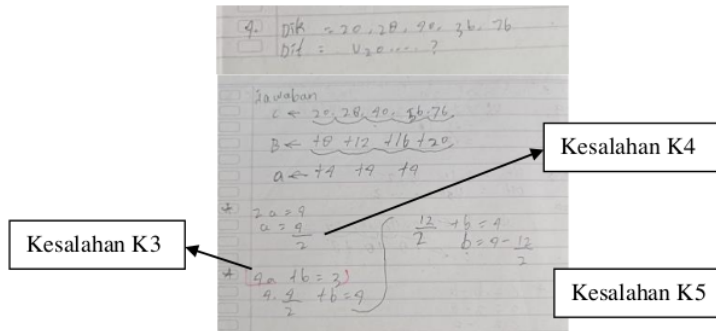 4. Dik = 20, 28, 40, 56, 76
Dit = U20 .... ?
Jawaban
c ← 20, 28, 40, 56, 76
B ← +8 +12 +16 +20
a ← +4 +4 +4
2a = 4
a = 4/2
4a + b = 3)
4. 4/2 + b = 4
12/2 + b = 4
b = 4 - 12/2
Kesalahan K4
Kesalahan K3
Kesalahan K5